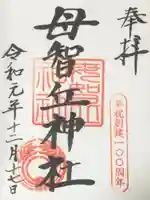 奉拝
母智丘神社
奉祝創建一〇〇周年
令和元年十二月十七日